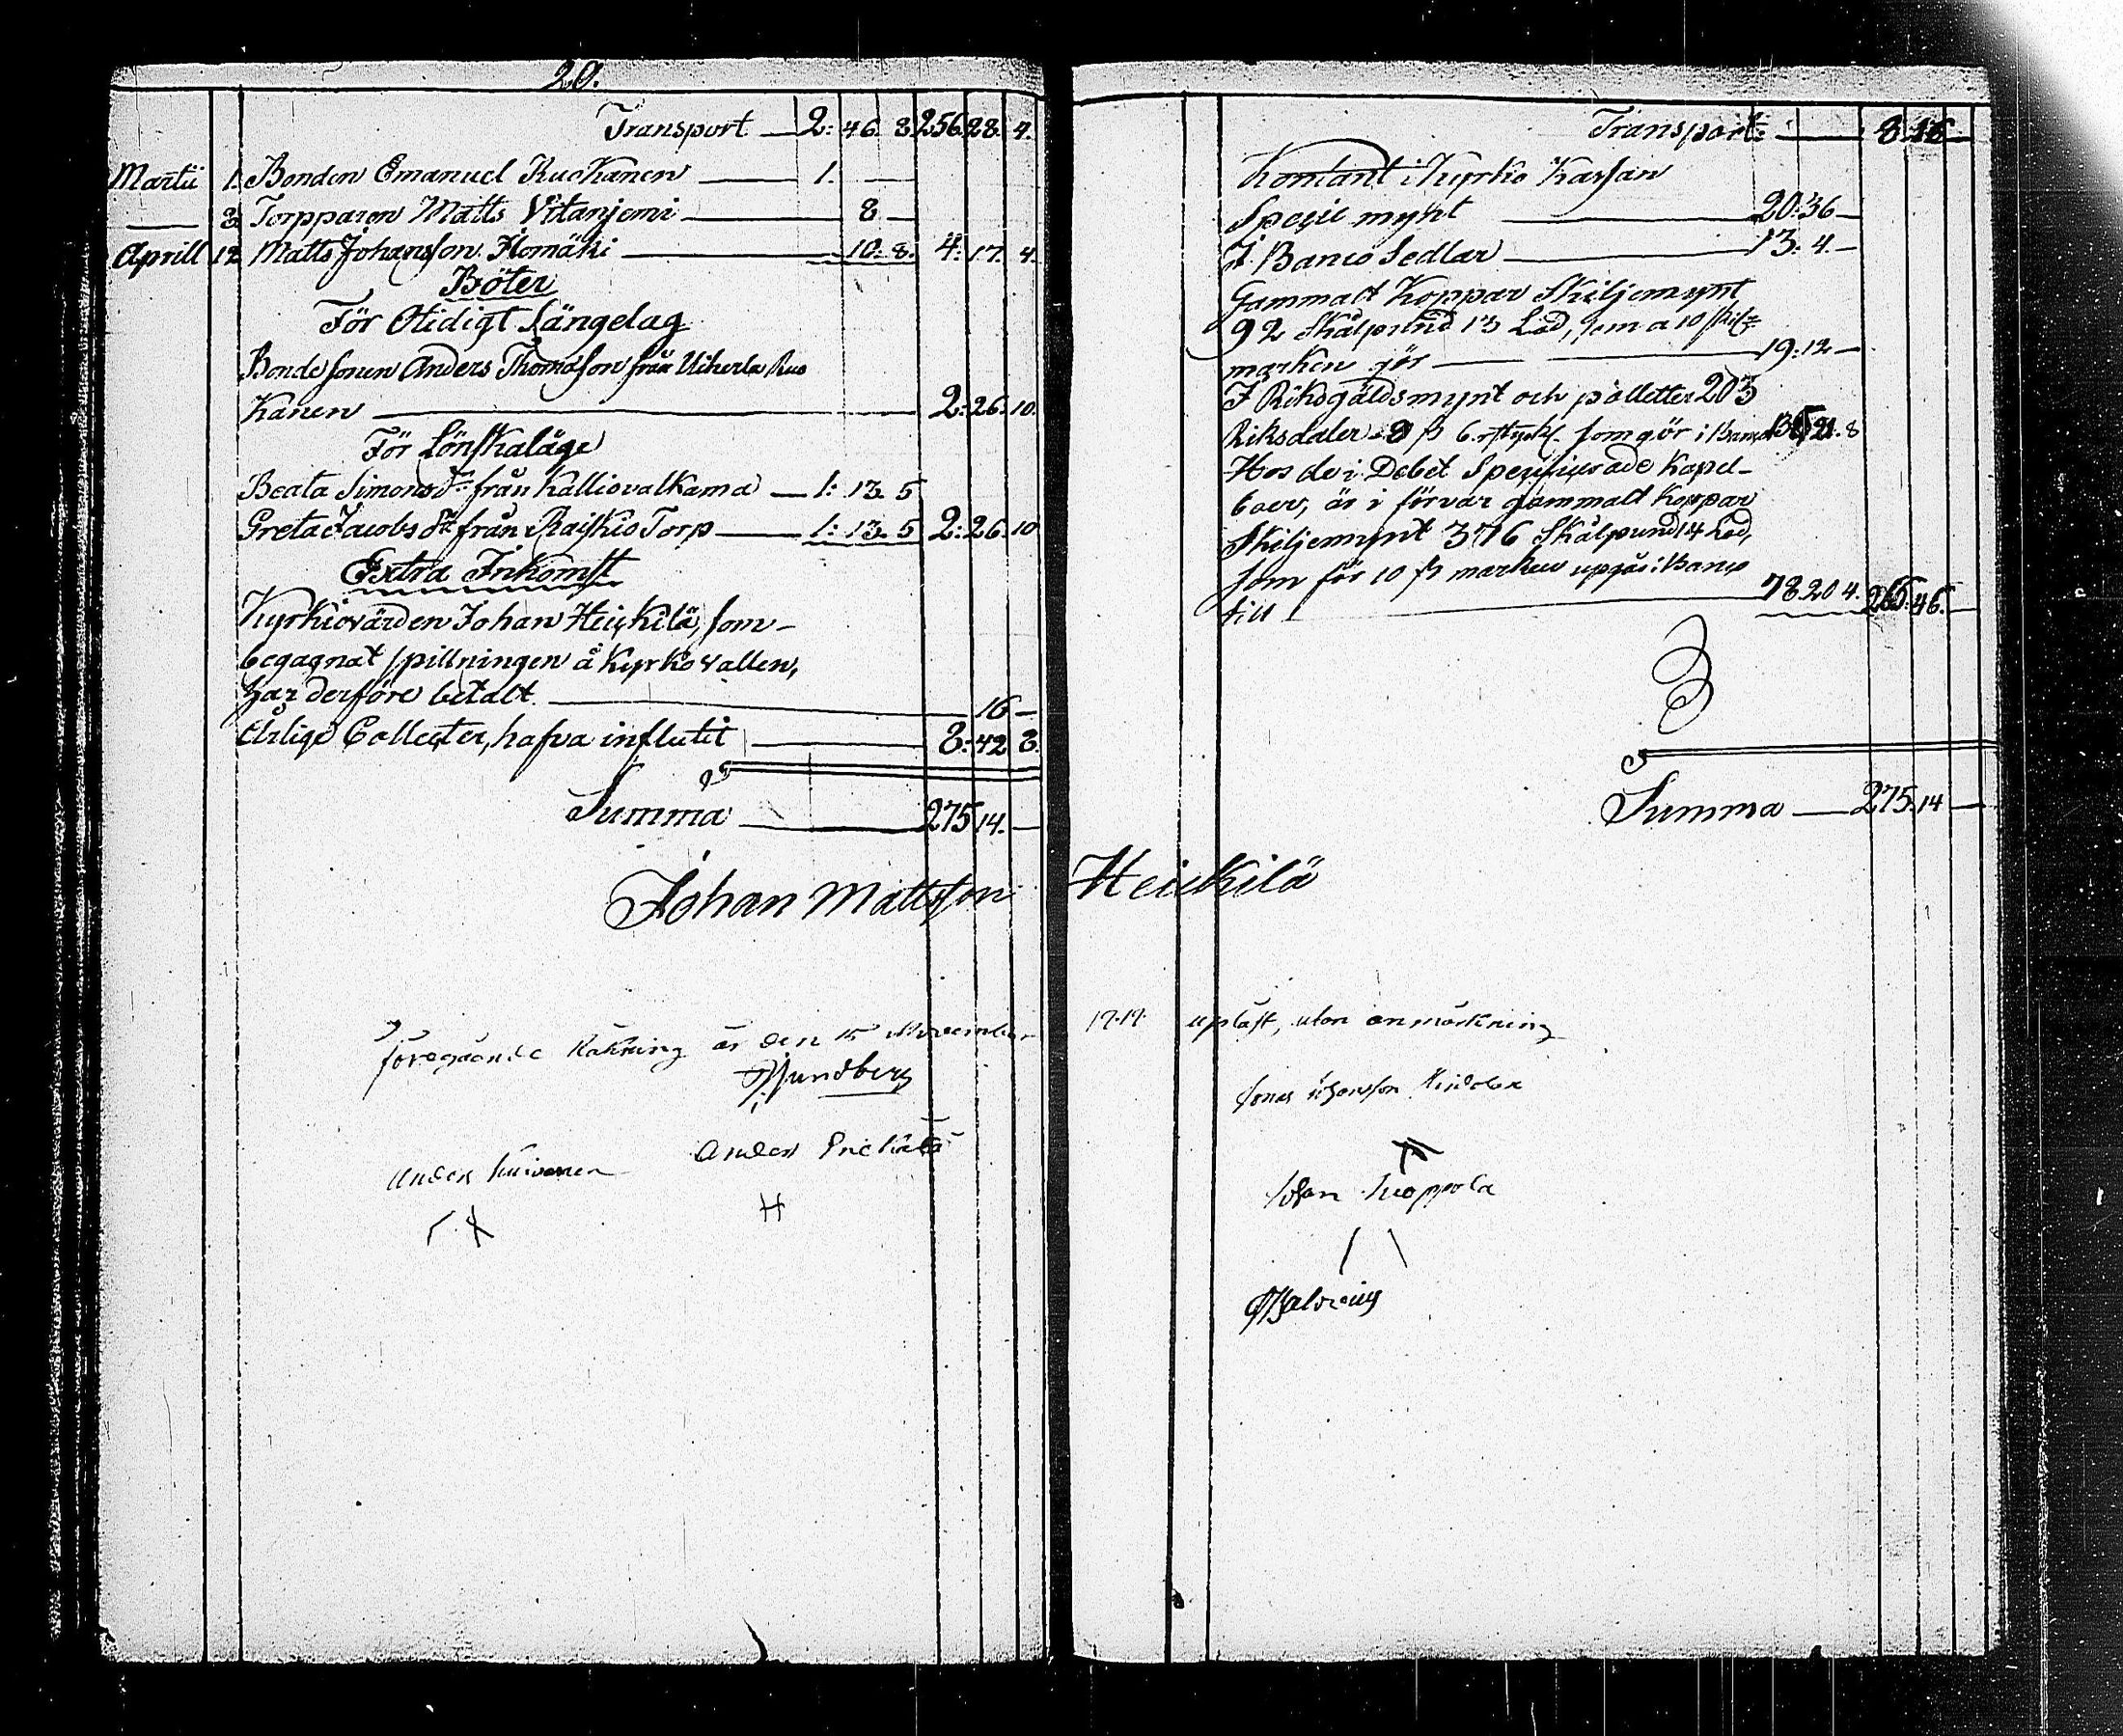 20.
Transport — 2: 46. 8. 256. 28. 4.
Martii 1. Bonden Emanuel Ruokanen — 1. —
— 8 Torpparen Matts Vitanjemi — 8 —
Aprill 12 Matts Johansson Homäki — 10: 8. 4: 17. 4.
Böter
För Otidigt Sängelag
Bonde sonen Anders Thomasson från Uikerla Ruo
kanen — 2: 26: 10.
För Lönskaläge
Beata Simons dr från Kalliovalkama — 1: 13. 5
Greta Jacobs dr från Raiskio Torp — 1: 13. 5 2: 26. 10
Extra Inkomst
Kyrkiovärden Johan Heickilä, som
begagnat spillningen å Kyrko vallen,
har derföre betalt. — 16 —
Årlige Collecter, hafva influtit — 8: 42 8.
Summa — 275 14. —
Johan Mattsson
föregående Räkning är den 15 November
Anders
Anders
H
Transport — 8. 16 —
Kontant i Kyrko Kassan
Specie mynt — 20: 36 —
I Banco Sedlar — 13: 4. —
Gammalt Koppar Skiljemynt
92 Skålpund 13 Lod, som a 10 skil
marken gör — 19: 12 —
I Riksgäldsmynt och polletter 203
Riksdaler 8 ß 6. r styck. som gör i Banco 135 21. 8
Hos de i Debet Specificerade Kapel-
boer, är i förvar gammalt Koppar
Skiljemynt 376 Skålpund 14 Lod,
som för 10 ß marken upgår i Banco
till — 78. 20 4. 266: 46. —
Summa — 275. 14 —
Heickilä
upläst, utan anmärkning
Johan Kuoppola